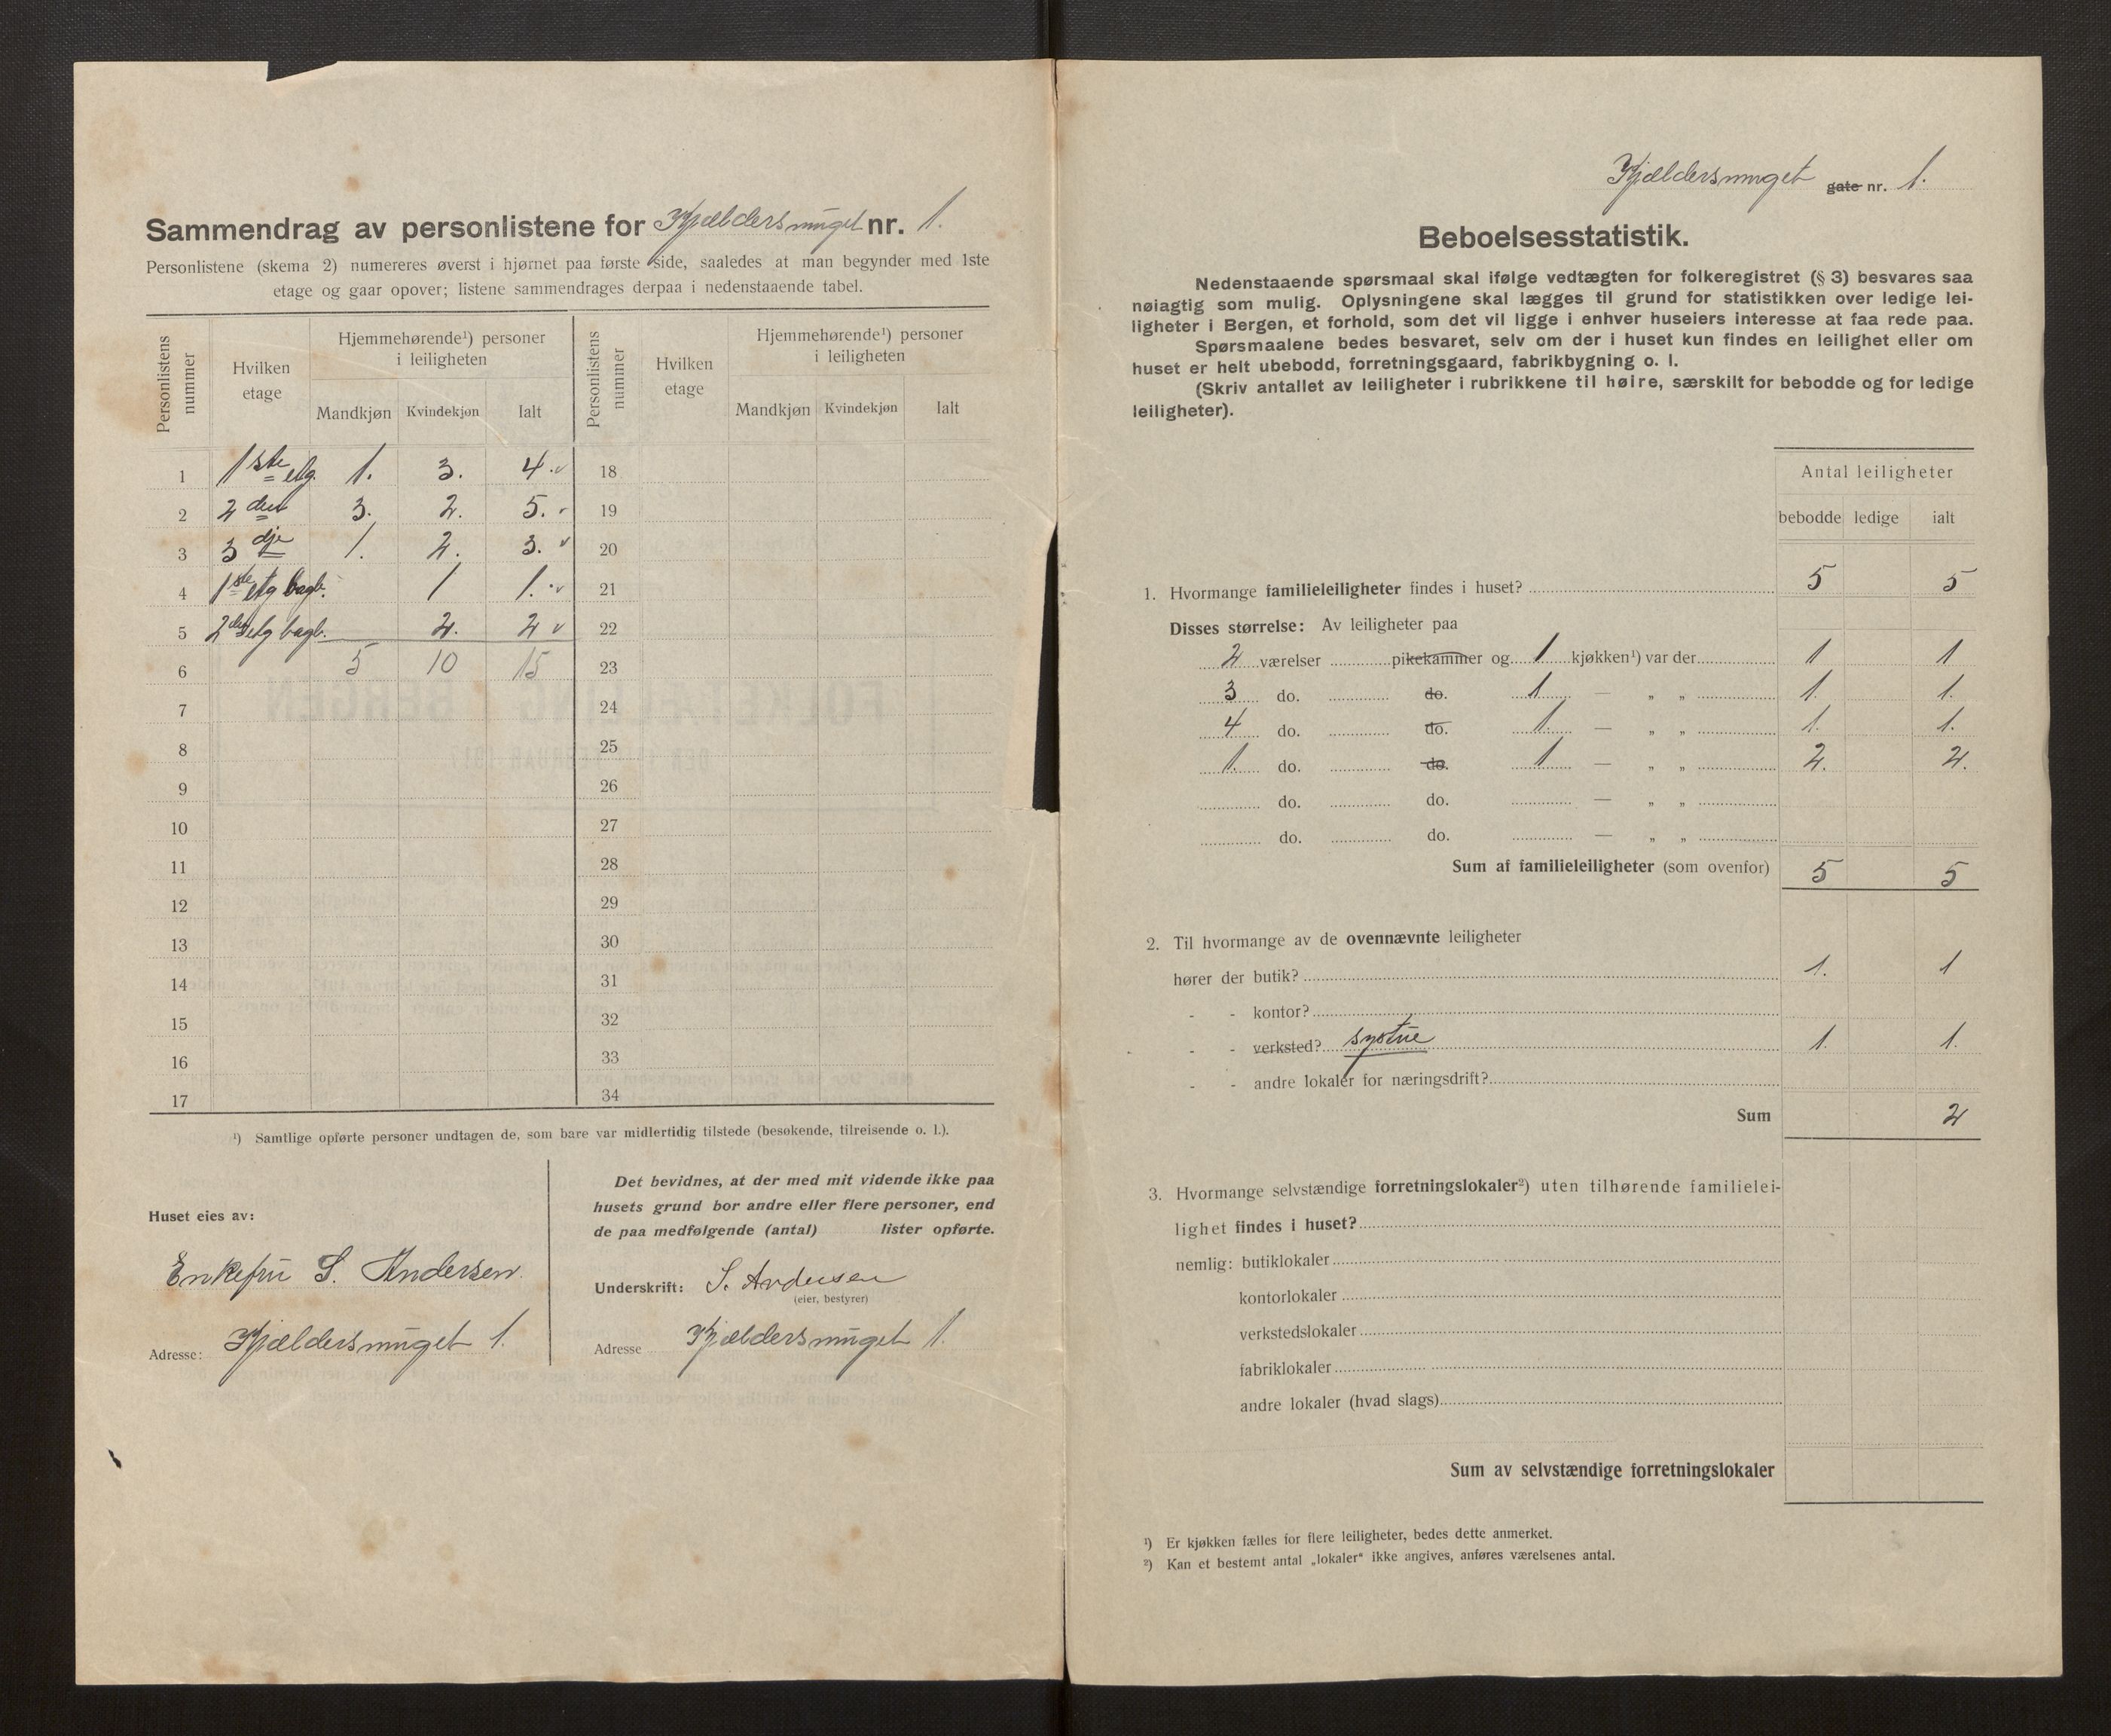 Sammendrag av personlistene for Kjældersmuget nr. 1.
Personlistene (skema 2) numereres øverst i hjørnet paa første side, saaledes at man begynder med 1ste
etage og gaar opover; listene sammendrages derpaa i nedenstaaende tabel.
Personlistens nummer Hvilken etage Hjemmehørende¹) personer i leiligheten Personlistens nummer Hvilken etage Hjemmehørende¹) personer i leiligheten
Mandkjøn Kvindekjøn Ialt Mandkjøn Kvindekjøn Ialt
1 1ste etg. 1. 3. 4. 18
2 2den 3. 2. 5. 19
3 3dje 1. 2. 3. 20
4 1ste etg bagb. 1 1. 21
5 2den etg bagb. 2. 2 22
6 5 10 15 23
7 24
8 25
9 26
10 27
11 28
12 29
13 30
14 31
15 32
16 33
17 34
¹) Samtlige opførte personer undtagen de, som bare var midlertidig tilstede (besøkende, tilreisende o. l.).
Huset eies av:
Enkefru S. Andersen.
Adresse: Kjældersmuget 1.
Det bevidnes, at der med mit vidende ikke paa
husets grund bor andre eller flere personer, end
de paa medfølgende (antal) lister opførte.
Underskrift: S. Andersen
(eier, bestyrer)
Adresse Kjældersmuget 1.
Kjældersmuget gate nr. 1.
Beboelsesstatistik.
Nedenstaaende spørsmaal skal ifølge vedtægten for folkeregistret (§ 3) besvares saa
nøiagtig som mulig. Oplysningene skal lægges til grund for statistikken over ledige lei-
ligheter i Bergen, et forhold, som det vil ligge i enhver huseiers interesse at faa rede paa.
Spørsmaalene bedes besvaret, selv om der i huset kun findes en leilighet eller om
huset er helt ubebodd, forretningsgaard, fabrikbygning o. l.
(Skriv antallet av leiligheter i rubrikkene til høire, særskilt for bebodde og for ledige
leiligheter).
Antal leiligheter
bebodde ledige ialt
1. Hvormange familieleiligheter findes i huset? 5 5
Disses størrelse: Av leiligheter paa
2 værelser pikekammer og 1 kjøkken¹) var der 1 1
3 do. do. 1 — „ „ 1. 1.
4 do. do. 1. — „ „ 1. 1.
1. do. do. 1 — „ „ 2. 2.
do. do. — „ „
do. do. — „ „
Sum af familieleiligheter (som ovenfor) 5 5
2. Til hvormange av de ovennævnte leiligheter
hører der butik? 1. 1
- - kontor?
- - verksted? systue 1. 1.
- - andre lokaler for næringsdrift?
Sum 2
3. Hvormange selvstændige forretningslokaler²) uten tilhørende familielei-
lighet findes i huset?
nemlig: butiklokaler
kontorlokaler
verkstedslokaler
fabriklokaler
andre lokaler (hvad slags)
Sum av selvstændige forretningslokaler
¹) Er kjøkken fælles for flere leiligheter, bedes dette anmerket.
²) Kan et bestemt antal „lokaler“ ikke angives, anføres værelsenes antal.